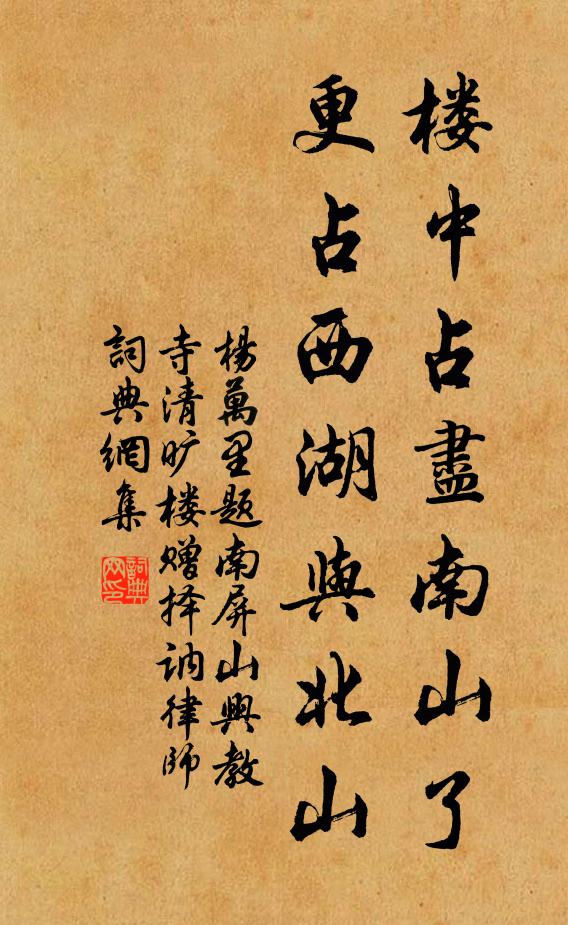 楼中占盡南山了
更占西湖與北山
楊萬里题南屏山興教
寺清旷楼赠择讷律師
詞典網集
詞典
网印